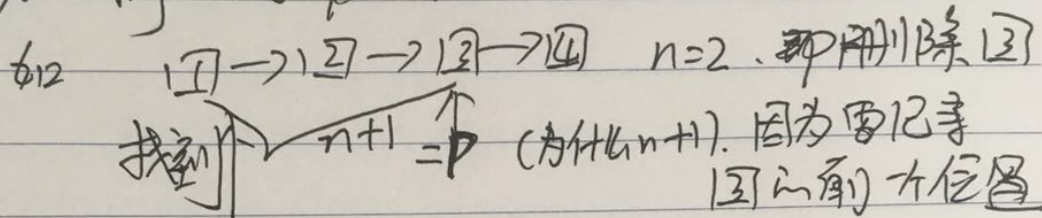 例2 ① → ② → ③ → ④ n=2. 即删除③
找到 n+1 =P (为什么n+1). 因为需记录
③的前一个位置